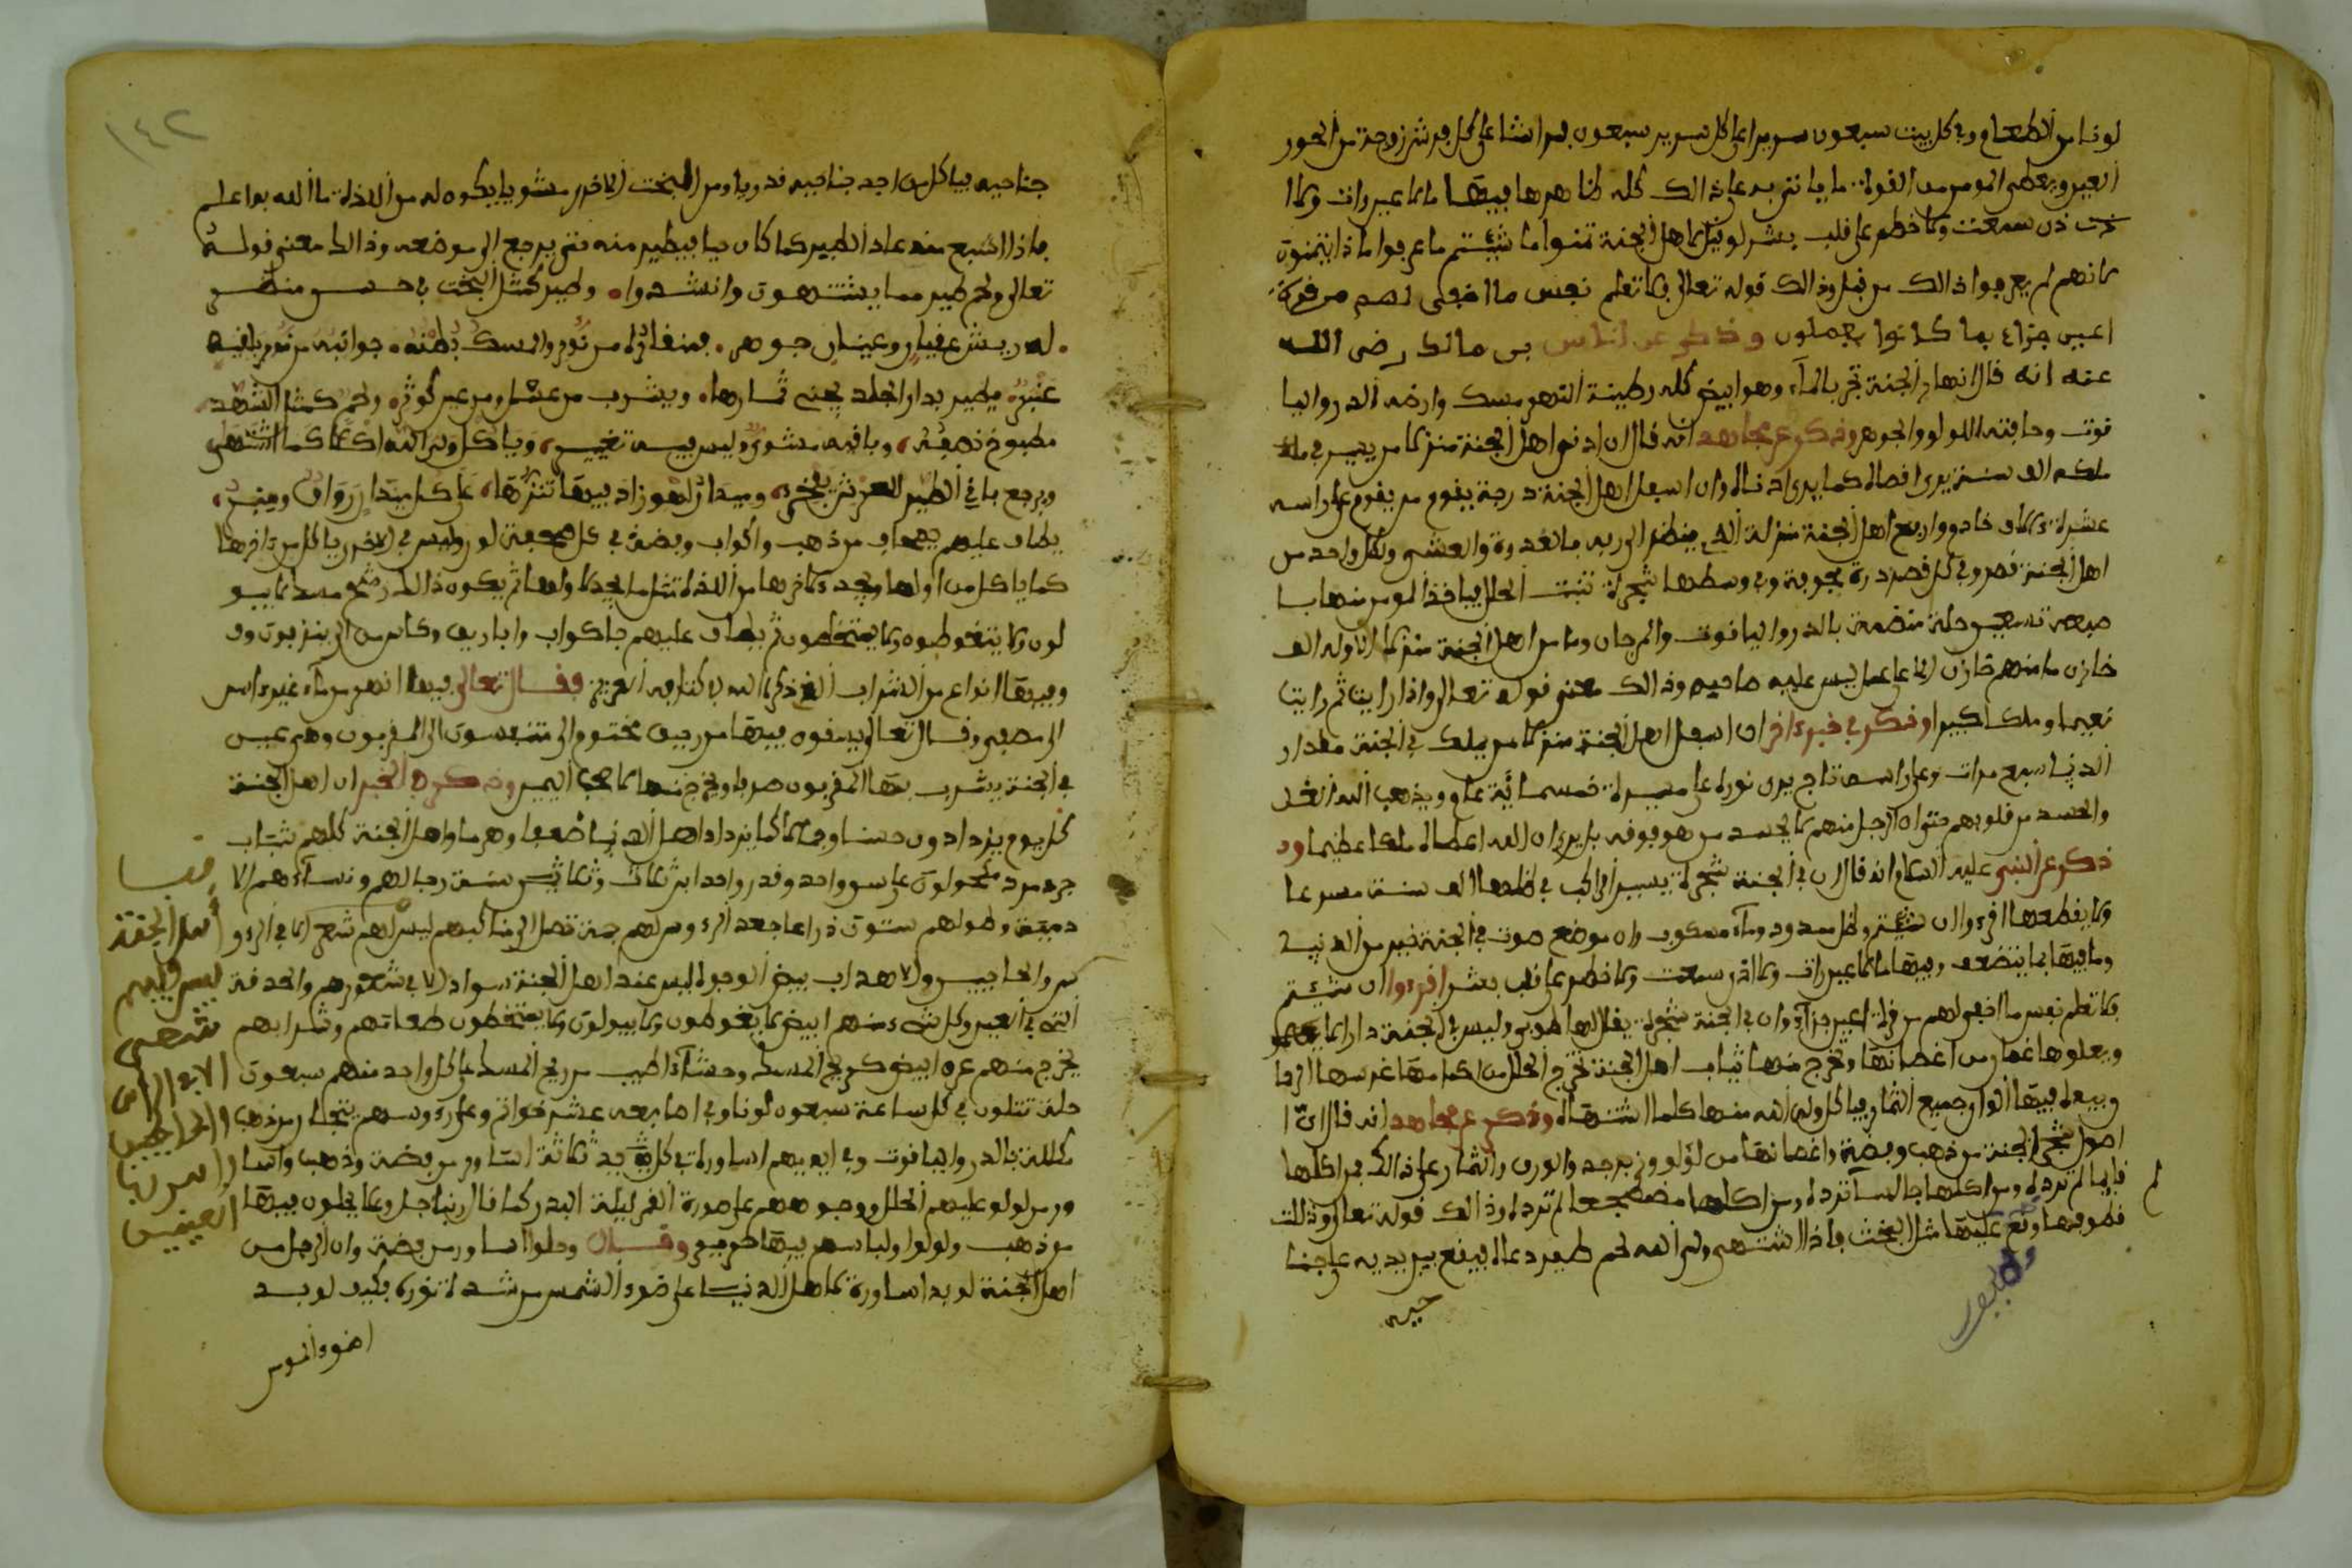 لونا من الطعام وفي كل بيت سبعون سريرا على كل سرير سبعون فراشا على كل فراش زوجة من الحور
العين ويعطى المومن من القوة ما ياتي به على ذالك كله
ولا خطر على قلب بشر لو قيل لاهل الجنة تمنوا ما شيتم ما عرفوا ماذا يتمنون
لانهم لم يعرفوا ذالك من قبل وذالك قوله تعالى فلا تعلم نفس ما اخفى لهم من قرة
اعين جزاء بما كانوا يعملون وذكر عن انس بن مالك رضى الله
عنه انه قال انهار الجنة تجر بالماء وهو ابيض كله وطينة النهر مسك وارضه الدر واليا
قوت وحافته اللولو والجوهر وذكر عن مجاهد انه قال ان ادنى اهل الجنة منزلا من يسير في ملك
ملكه الف سنة يرى اقصاه كما يرى ادناه وان اسفل اهل الجنة درجة يقوم من يقوم على راسه
عشرة ءالاف خادم وارفع اهل الجنة منزلة الذي ينظر الى ربه بالغدوة والعشي ولكل واحد من
اهل الجنة قصر وفي كل قصر درة مجوفة وفي وسطها شجرة تنبت الحلل فياخذ المومن منها با
صبعه سبعين حلة منظمة بالدر والياقوت والمرجان وما من اهل الجنة منزلا الا وله الف
خازن ما منهم خازن الا على عمل ليس عليه صاحبه وذالك معنى قوله تعالى واذا رايت ثم رايت
نعيما وملكا كبيرا وذكر في خبر ءاخر ان اسفل اهل الجنة منزلا من يملك في الجنة مقدار
الدنيا سبع مرات وعلى راسه تاج يرى نوره على مسيرة خمسمائة عام ويذهب الله الغل
والحسد من قلوبهم حتى ان الرجل منهم لا يحسد من هو فوقه بل يرى ان الله اعطاه ملكا عظيما و
ذكر عن النبي عليه السلام انه قال ان في الجنة شجرة يسير الراكب في ظلها الف سنة مسرعا
ولا يقطعها اقرءوا ان شئتم وظل ممدود وماء مسكوب وان موضع صوت في الجنة خير من الدنيا
وما فيها وفيها ما لا عين رات ولا اذن سمعت ولا خطر على قلب بشر اقرءوا ان شئتم
فلا تعلم نفس ما اخفي لهم من قرة اعين جزاء وان في الجنة شجرة يقال لها طوبى وليس في الجنة دار الا
ويعلوها غصن من اغصانها وتخرج منها ثياب اهل الجنة تخرج الحلل من اكمامها غرسها الرحمان
وجعل فيها الوان جميع الثمار فياكل ولي الله منها كلما اشتهاه وذكر عن مجاهد انه قال ان
اصول شجر الجنة من ذهب وفضة واغصانها من لؤلؤ وزبرجد والورق والثمار على ذالك فمن اكلها
قايما لم تردله ومن اكلها جالسا تردله ومن اكلها مضطجعا لم تردله وذالك قوله تعالى وذللت
قطوفها وتقع عليها مثل البخت فاذا اشتهى ولي الله لحم طير دعاه فيقع بين يديه على جنا
حيه
١٤٢
جناحيه فياكل من احد جناحيه قديدا ومن الجنب الاخر مشويا فيكون له من اللذة ما الله به اعلم
فاذا اشبع منه عاد الطير كما كان حيا فيطير منه حتى يرجع الى موضعه وذالك معنى قوله
تعالى ولحم طير مما يشتهون وانشدوا وطير كمثل البخت في حسن منظر
له ريش عقيان وعينان جوهر منقاره من نور والمسك بطنه
عنبر يطير بدار الخلد يجنى ثمارها ويشرب من عسل ومن عين كوثر ولحم كمثل الشهد
مطبوخ نصفه وباقيه مشوي وليس فيه تغيير وياكل ولي الله اكلا كما اشتهى
ويرجع باقي الطير
يطاف عليهم بصحاف من ذهب واكواب وفضة في كل صحفة لون وليس في الاخر ياكل من ءاخرها
كما ياكل من اولها ويجد ءلاخرها من اللذة مثل ما يجد لاولها ثم يكون ذالك رشح مسك لا يبو
لون ولا يتغوطون ولا يمتخطون ثم يطاف عليهم باكواب واباريق وكاس من
وفيها انواع من الشراب الذي ذكر الله في كتابه العزيز فقال تعالى فيها انهر من ماء غير ءاسن
الى مصفى وقال تعالى يسقون فيها من رحيق مختوم الى متنفسون الى المقربون وهي عين
في الجنة يشرب بها المقربون صرفا وتمزج منها لاصحب اليمين وذكر في الخبر ان اهل الجنة
كل يوم يزدادون حسنا وجمالا كما يزداد اهل الدنيا ضعفا وهرما واهل الجنة كلهم شباب
جرد مرد مكحولون على سن واحد وقدر واحد ابن ثلاث وثلاثين سنة رجالهم ونساءهم الا
وطولهم ستون ذراعا جعد الرءوس لهم جمة تصل الى مناكبهم ليس لهم شعر الا في الرءو
س والحاجبين والاهداب بيض الوجوه ليس عند اهل الجنة سواد الا في شعورهم والحدقة
التي في العين وكل شيء منهم ابيض لا يتغوطون ولا يبولون ولا يمتخطون طعامهم وشرابهم
يخرج منهم عرق ابيض كريح المسك وجشاء اطيب من ريح المسك على كل واحد منهم سبعون
حلة تتلون في كل ساعة سبعون لونا وفي اصابعه عشر خواتم وعلى رءوسهم تيجان من ذهب
مكللة بالدر والياقوت وفي ايديهم اساورة في كل يد ثلاثة اساور من فضة وذهب واسا
ور من لولو عليهم الحلل ووجوههم على صورة القمر ليلة البدر كما قال ربنا جل وعلا يحلون فيها
من ذهب ولولوا ولباسهم فيها حرير وقال وحلوا اساور من فضة وان الرجل من
اهل الجنة لو بدا اساوره لاهل الدنيا على ضوء الشمس من شدة نوره فكيف لو بد
اضوء الشمس
اهل الجنة
ليس فيهم
شعر
الا في الراس
والحاجبين
العينين